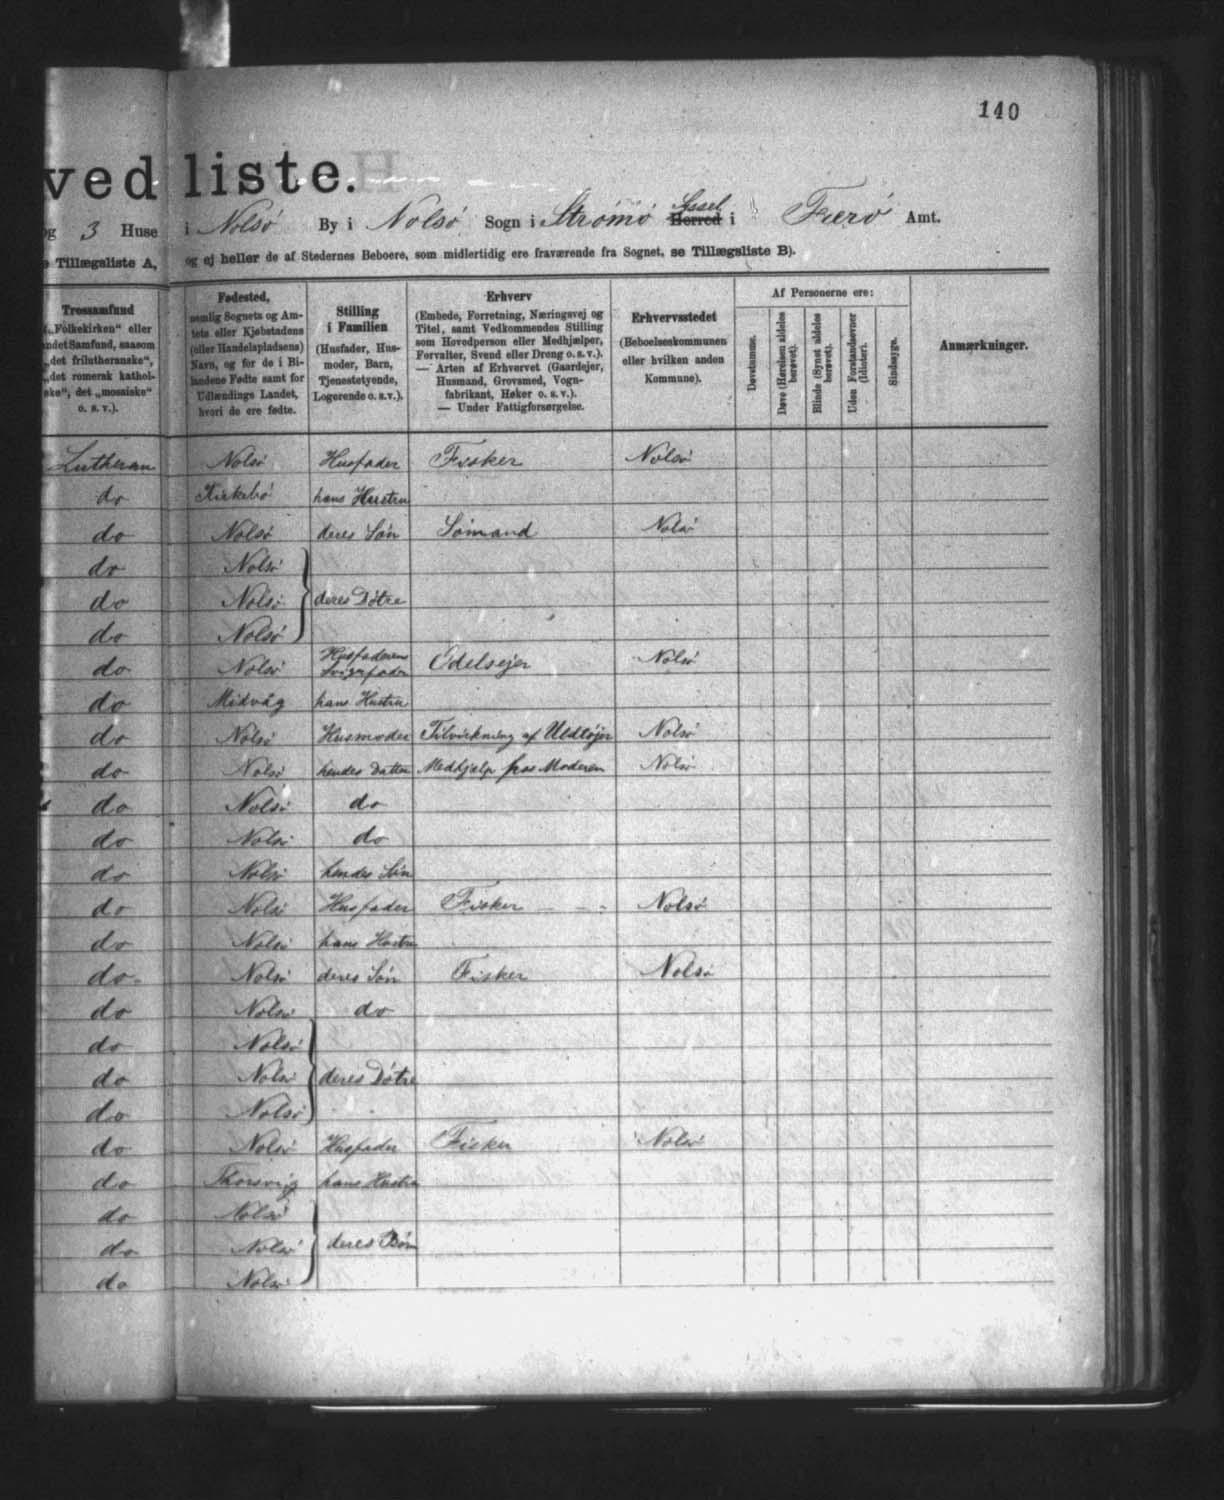 140
ved liste.
og 3 Huse i Nolsø By i Nolsø Sogn i Strømø Syssel Herred i Færø Amt.
e Tillægsliste A, og ej heller de af Stedernes Beboere, som midlertidig ere fraværende fra Sognet, se Tillægsliste B).
Trossamfund
(„Folkekirken“ eller
andet Samfund, saasom
„det frilutheranske“,
„det romersk kathol-
ske“, det „mosaiske“
o. s. v.).
Fødested,
nemlig Sognets og Am-
tets eller Kjøbstadens
(eller Handelspladsens)
Navn, og for de i Bi-
landene Fødte samt for
Udlændinge Landet,
hvori de ere fødte.
Stilling
i Familien
(Husfader, Hus-
moder, Barn,
Tjenestetyende,
Logerende o. s. v.).
Erhverv
(Embede, Forretning, Næringsvej og
Titel, samt Vedkommendes Stilling
som Hovedperson eller Medhjælper,
Forvalter, Svend eller Dreng o. s. v.).
— Arten af Erhvervet (Gaardejer,
Husmand, Grovsmed, Vogn-
fabrikant, Høker o. s. v.).
— Under Fattigforsørgelse.
Erhvervsstedet
(Beboelseskommunen
eller hvilken anden
Kommune).
Af Personerne ere:
Døvstumme.
Døve (Hørelsen aldeles
berøvet).
Blinde (Synet aldeles
berøvet).
Uden Forstandsevner
(Idioter).
Sindssyge.
Anmærkninger.
Lutheran Nolsø Husfader Fisker Nolsø
do Kirkebø hans Hustru
do Nolsø deres Søn Sømand Nolsø
do Nolsø
do Nolsø deres Døtre
do Nolsø
do Nolsø Husfaderens Svigerfader Odelsejer Nolsø
do Midvåg hans Hustru
do Nolsø Husmoder Tilvirkning af Uldtøjer Nolsø
do Nolsø hendes Datter Medhjælp hos Moderen Nolsø
do Nolsø do
do Nolsø do
do Nolsø hendes Søn
do Nolsø Husfader Fisker Nolsø
do Nolsø hans Hustru
do Nolsø deres Søn Fisker Nolsø
do Nolsø do
do Nolsø
do Nolsø deres Døtre
do Nolsø
do Nolsø Husfader Fisker Nolsø
do Thorsvig hans Hustru
do Nolsø
do Nolsø deres Børn
do Nolsø